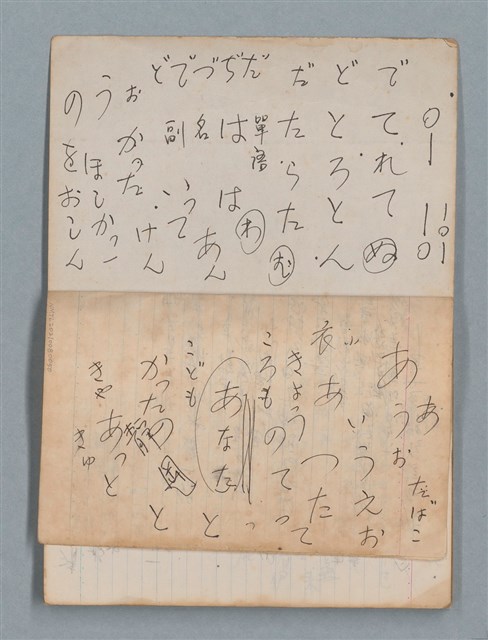 でてれてぬ
どとろとん
だたらたむ
だぢづでど
はは わ
單語
名
副
って
あん
けん
おかった
うほしかっ
のをおしん
たばこ
あ
あうお
あいうえお
衣
きょう
つたて
ころも
のてっ
あなた
と
こども
かった
と
あっと
きゃ
きゅ